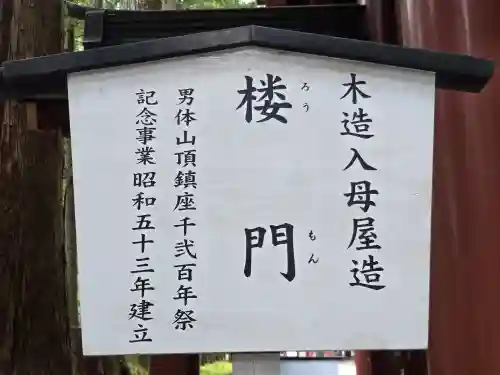 木造入母屋造
楼門
ろうもん
男体山頂鎮座千弐百年祭
記念事業昭和五十三年建立